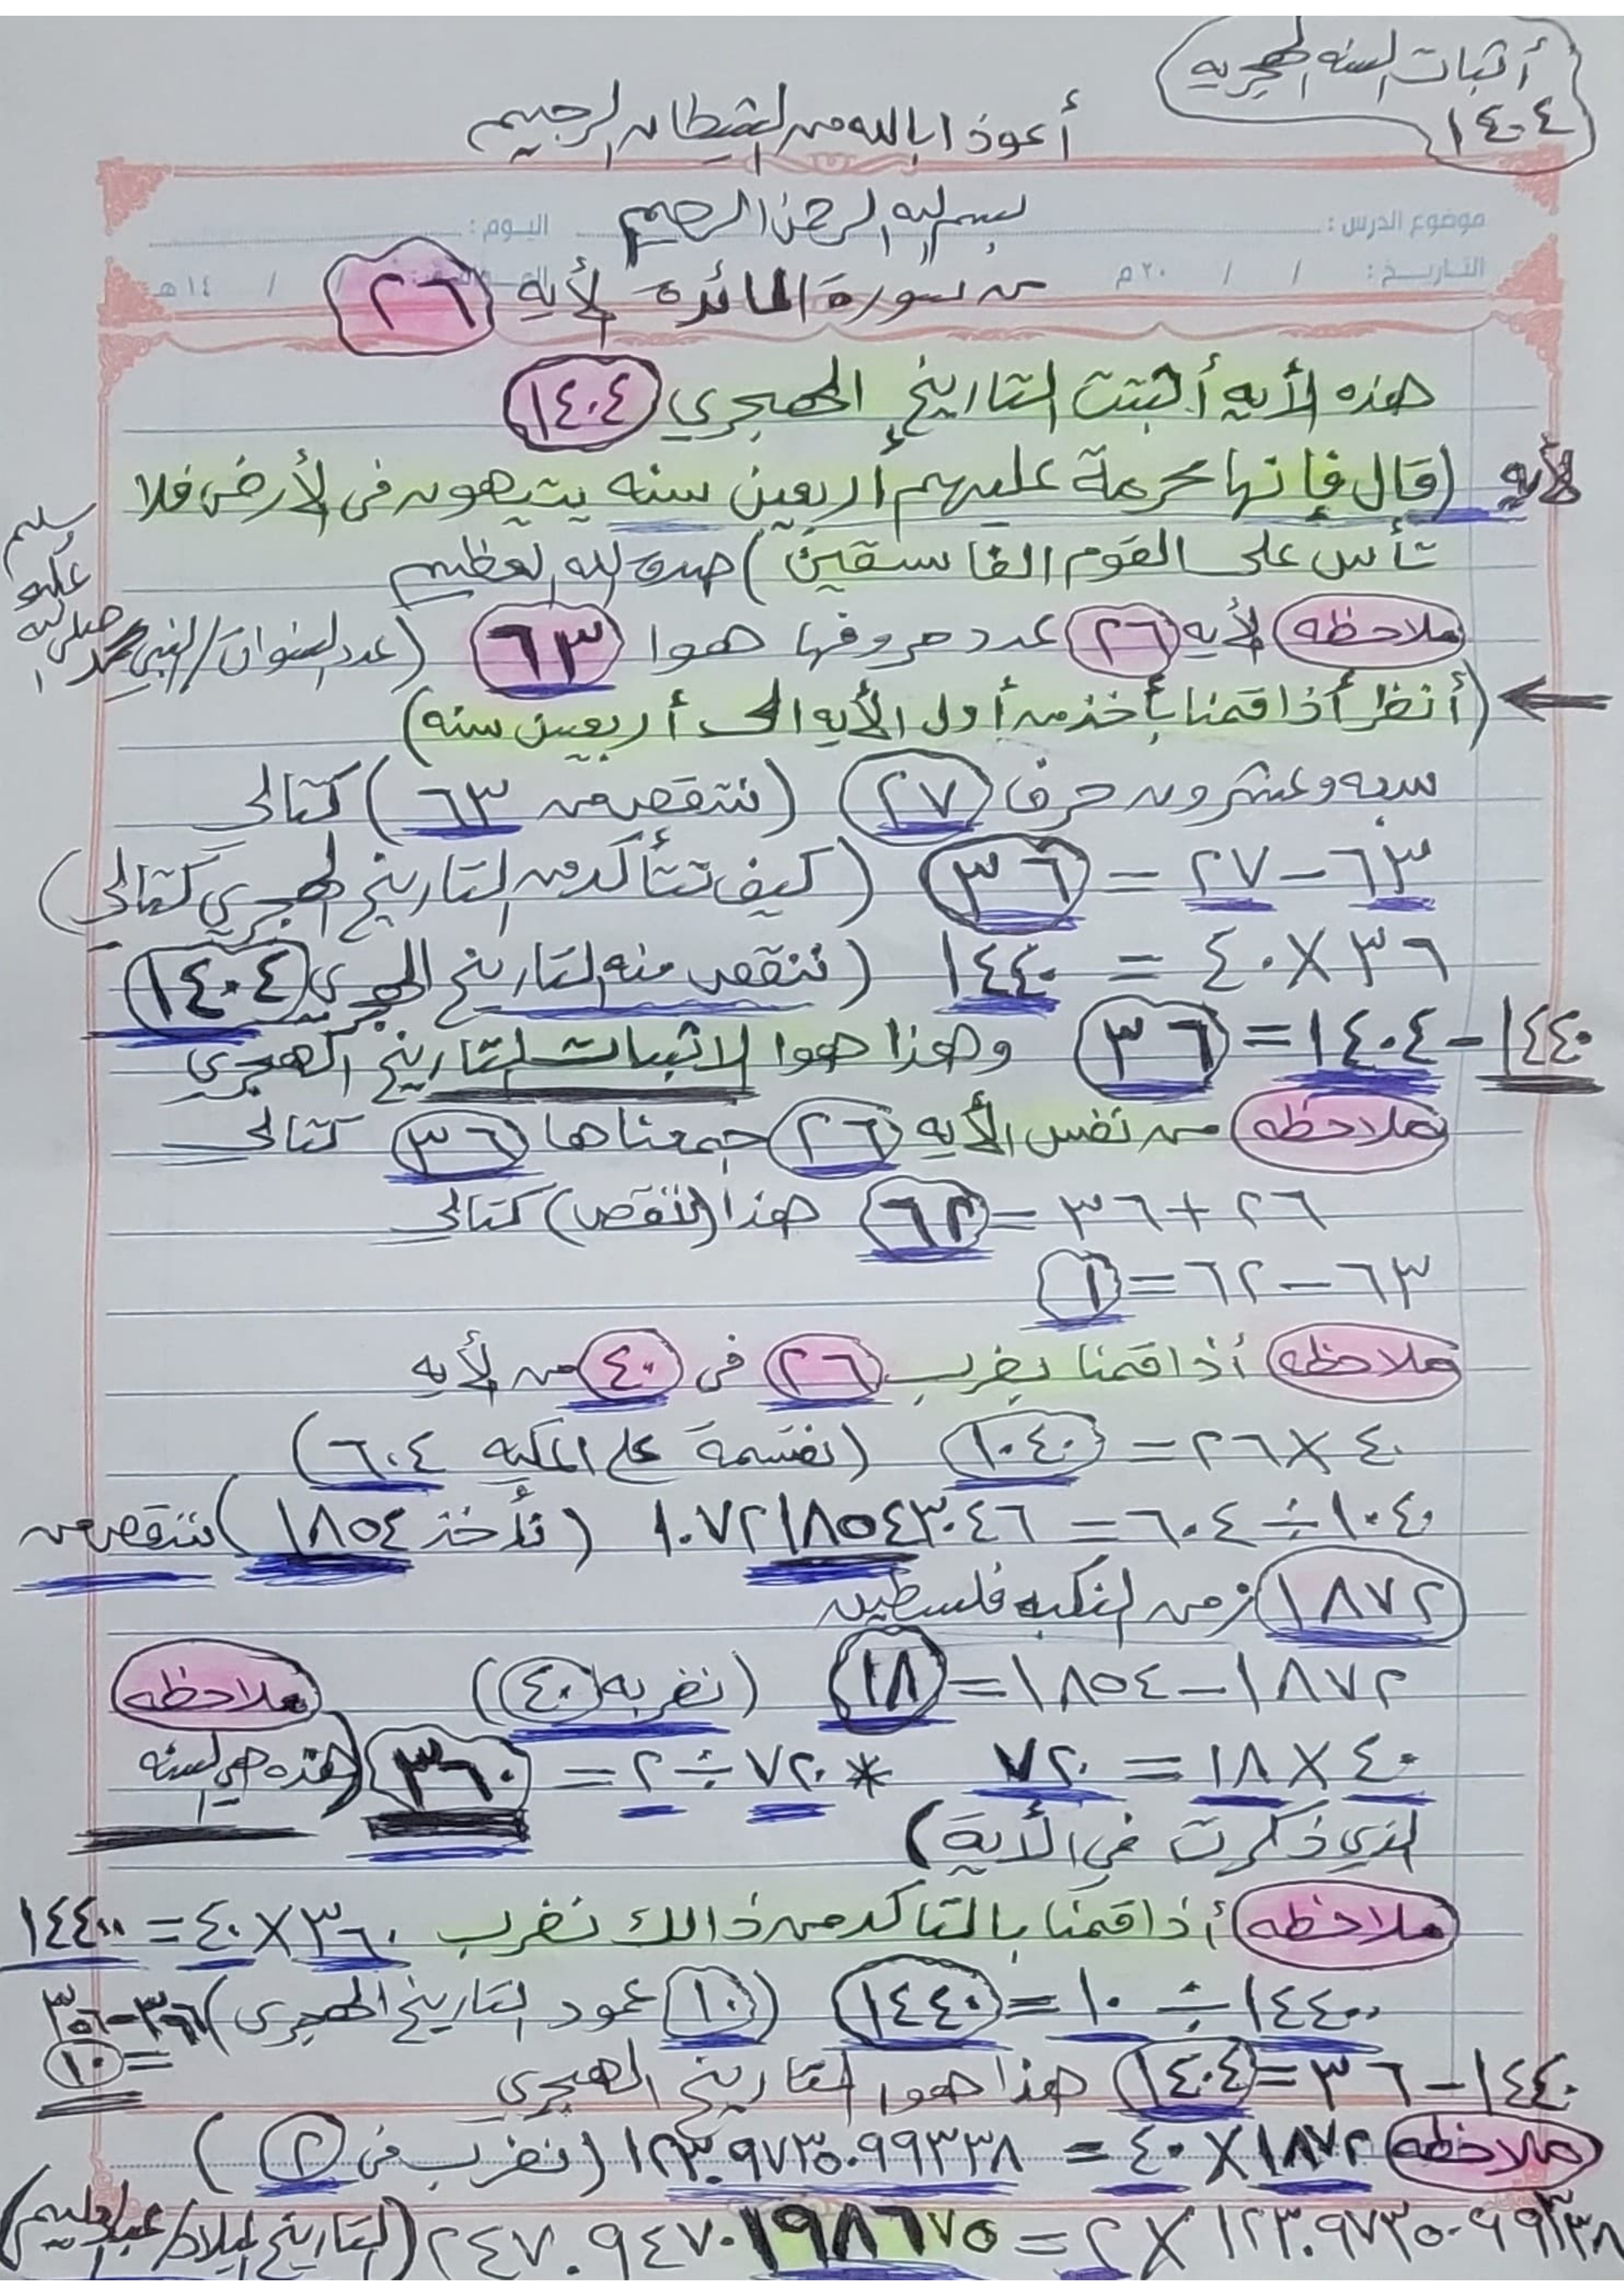 أثبات السنه الهجريه
١٤٠٤
أعوذ ابالله من الشيطان الرجيم
بسم الله الرحمن الرحيم
موضوع الدرس : اليوم :
التاريخ : / / ٢٠م / / ١٤هـ
من سورة المائدة لأيه ٢٦
هذه الأيه أثبتت التاريخ الهجري ١٤٠٤
لأيه (قال فإنها محرمة عليهم أربعين سنه يتيهون في الأرض فلا
تأس على القوم الفاسقين) صدق الله العظيم
ملاحظه لأيه ٢٦ عدد حروفها هوا ٦٣ (عدد السنوات/النبي محمد
صلى الله
عليه
وسلم
(أنظر أذا قمنا بأخذ من أول الأيه الى أربعين سنه)
سبعه وعشرون حرف ٢٧ (ننتقص من ٦٣) كتالي
٦٣ - ٢٧ = ٣٦ (كيف تتأكد من التاريخ الهجري كتالي)
٣٦ × ٤٠ = ١٤٤٠ (ننقص منه التاريخ الهجري ١٤٠٤)
١٤٤٠ - ١٤٠٤ = ٣٦ وهذا هوا الاثبات لتاريخ الهجري
ملاحظه من نفس الأيه ٢٦ جمعناها ٣٦ كتالي
٢٦ + ٣٦ = ٦٢ هذا (ننقص) كتالي
٦٣ - ٦٢ = ١
ملاحظه أذا قمنا بضرب ٢٦ في ٤٠ من لأيه
٤٠ × ٢٦ = ١٠٤٠ (نقسمة على المكيه ٦٠٤)
١٠٤٠ ÷ ٦٠٤ = ١.٧٢١٨٥٤٣٠٤٦ (نأخذ ١٨٥٤) ننقص من
١٨٧٢ زمن النكبه فلسطين
١٨٧٢ - ١٨٥٤ = ١٨ (نضربه ٤٠) ملاحظه
٤٠ × ١٨ = ٧٢٠ * ٧٢٠ ÷ ٢ = ٣٦٠ (هذه هي السنه
الذي ذكرت في الأية)
ملاحظه أذا قمنا بالتاكد من ذالك نضرب ٣٦٠ × ٤٠ = ١٤٤٠٠
١٤٤٠٠ ÷ ١٠ = ١٤٤٠ (١٠ عمود التاريخ الهجري) ٣٦٦-٣٥٦
= ١٠
١٤٤٠ - ٣٦ = ١٤٠٤ هذا هوا التاريخ الهجري
ملاحظه ١٨٧٢ × ٤٠ = ١٢٣.٩٧٣٥٠٩٩٣٣٨ (نضرب في ٢)
١٢٣.٩٧٣٥٠٩٩٣٣٨ × ٢ = ٢٤٧.٩٤٧٠١٩٨٦٧٥ (التاريخ الميلاد/